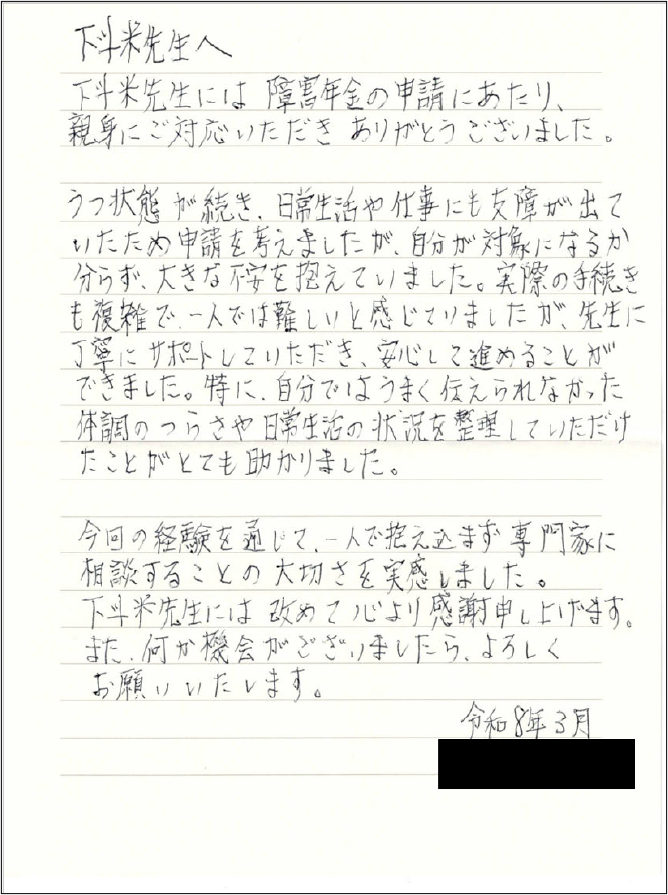 下斗米先生へ
下斗米先生には 障害年金の申請にあたり、
親身にご対応いただき ありがとうございました。
うつ状態が続き、日常生活や仕事にも支障が出て
いたため申請を考えましたが、自分が対象になるか
分らず、大きな不安を抱えていました。実際の手続き
も複雑で、一人では難しいと感じていましたが、先生に
丁寧にサポートしていただき、安心して進めることが
できました。特に、自分ではうまく伝えられなかった
体調のつらさや日常生活の状況を整理していただけ
たことがとても助かりました。
今回の経験を通じて、一人で抱え込まず専門家に
相談することの大切さを実感しました。
下斗米先生には改めて心より感謝申し上げます。
また、何か機会がございましたら、よろしく
お願いいたします。
令和8年3月